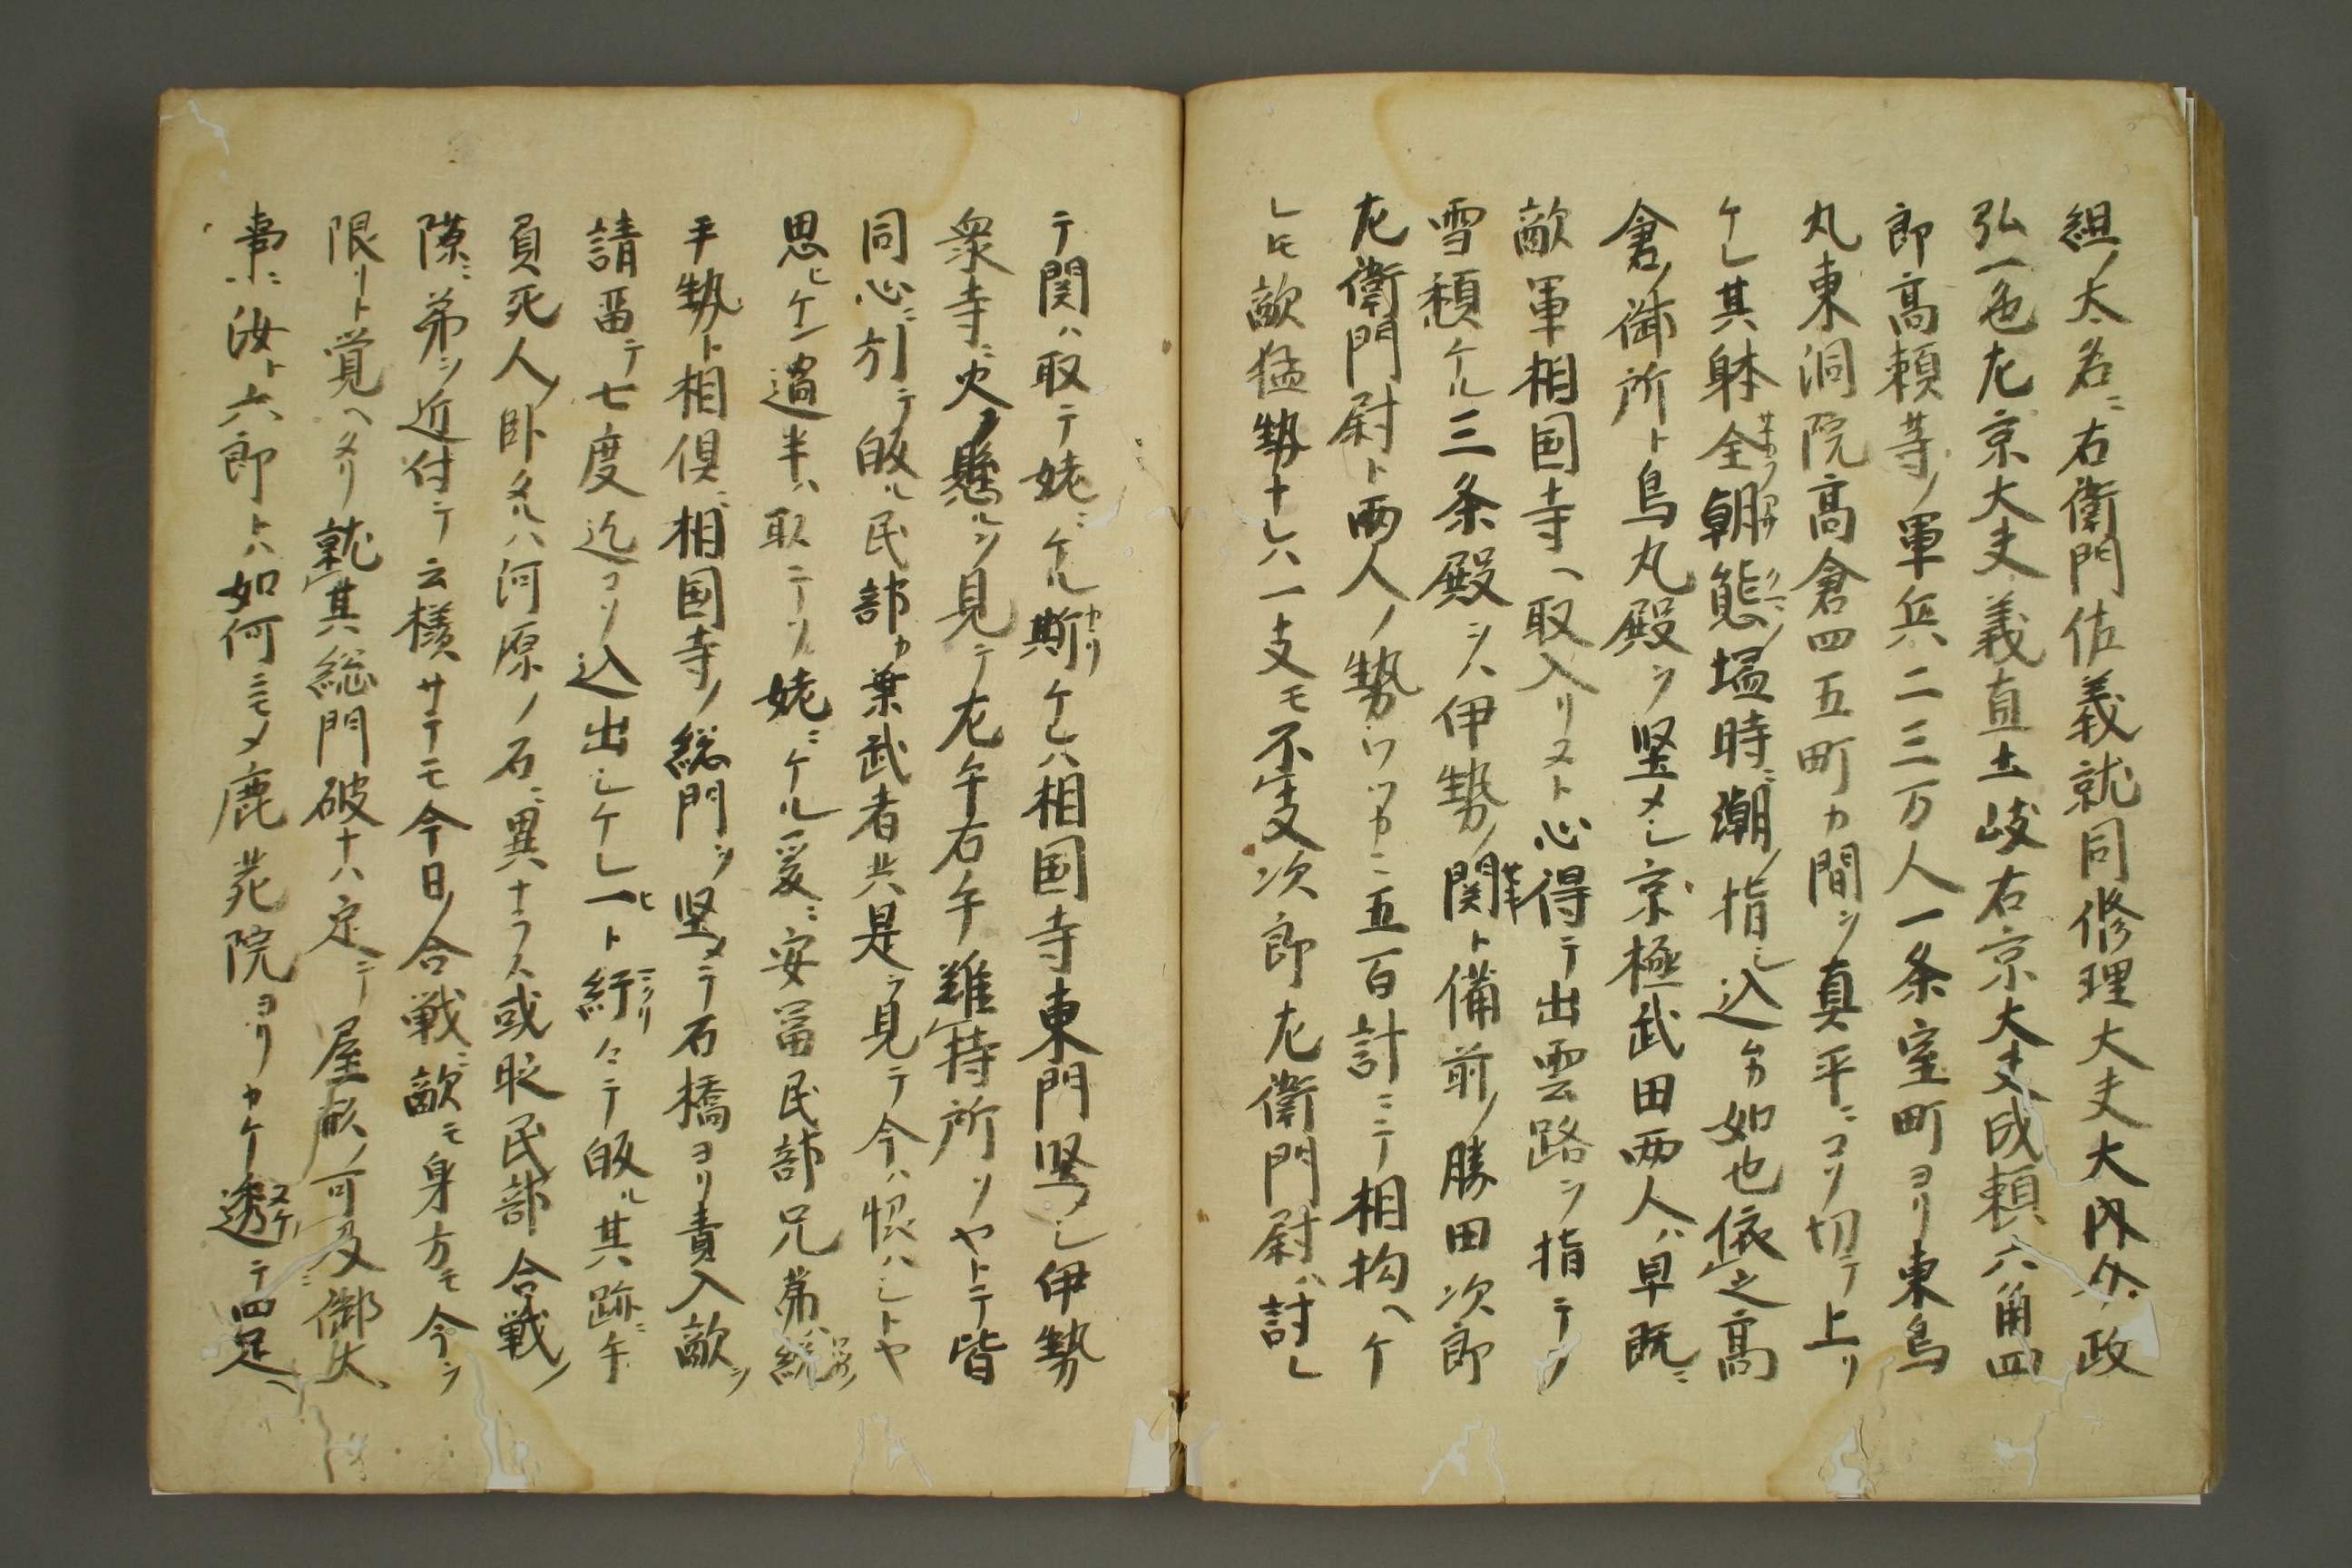 組ノ大名ニ右衛門佐義就同修理大夫大内介政
弘一色左京大夫義直土岐右京大夫成頼六角四
郎高頼等ノ軍兵二三万人一条室町ヨリ東烏
丸東洞院高倉四五町カ間ヲ真平ニコソ切テ上リ
ケレ其躰全朝態塩時ニ潮ノ指シ込ムカ如也依之高
倉ノ御所ト烏丸殿ヲ堅メシ京極武田両人ハ早既ニ
敵軍相国寺ヘ取入リヌト心得テ出雲路ヲ指テノ
雪頽ケル三条殿ヲハ伊勢ノ関ト備前ノ勝田次郎
左衛門尉ト両人ノ勢ワツカニ五百計ニテ相拘ヘケ
レ𪜈敵猛勢ナレハ一支モ不支次郎左衛門尉ハ討レ
テ関ハ取テ逃ニケル斯ケレハ相国寺東門堅メシ伊勢
衆寺ニ火ノ懸ルヲ見テ左午右午難待所ソヤトテ皆
同心ニ引テ皈ル民部カ葉武者共是ヲ見テ今ハ悵ハシトヤ
思ヒケン過半ハ取テソ逃ニケル爰ニ安富民部兄弟総
平勢ト相倶ニ相国寺ノ総門ヲ堅メテ石橋ヨリ責入敵ヲ
請留テ七度迄コソ込出シケレ一ト糾々テ皈ル其跡ニ午
負死人ノ臥タルハ河原ノ石ニ異ナラス或時民部合戦ノ
隙ニ弟ヲ近付テ云様サテモ今日ノ合戦ニ敵モ身方モ今ヲ
限リト覚ヘタリ就其総門破ナハ定テ屋形ノ可及御大
事ニ汝ト六郎トハ如何ニモメ鹿苑院ヨリカケ透テ四足ヘ